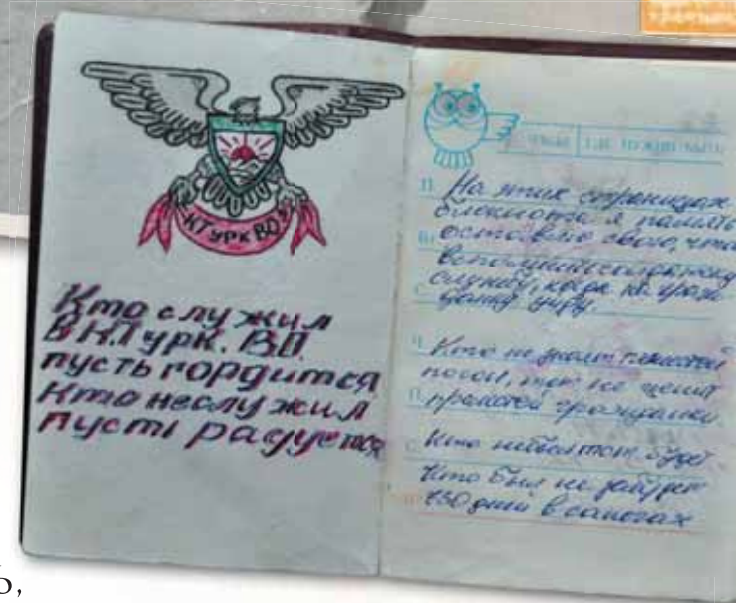 КТУРК ВО
Кто служил
В К.Турк. В.О.
пусть гордится
Кто неслужил
пусть радуется
На этих страницах
блокнота я память
оставлю свою, чтоб
вспомнить солдатскую
службу, когда на граж
данку уйду.
Кто не знает тяжестей
погон, тот не ценит
прелестей гражданки
Кто небыл тот будет
Кто был не забудет
730 дней в сапогах
ь,